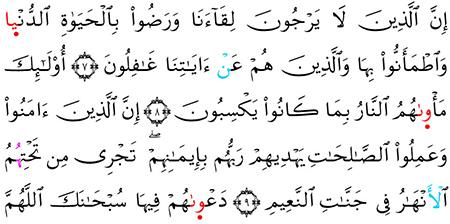 إِنَّ ٱلَّذِينَ لَا يَرْجُونَ لِقَآءَنَا وَرَضُوا۟ بِٱلْحَيَوٰةِ ٱلدُّنْيَا
وَٱطْمَأَنُّوا۟ بِهَا وَٱلَّذِينَ هُمْ عَنْ ءَايَٰتِنَا غَٰفِلُونَ ﴿٧﴾ أُو۟لَٰٓئِكَ
مَأْوَىٰهُمُ ٱلنَّارُ بِمَا كَانُوا۟ يَكْسِبُونَ ﴿٨﴾ إِنَّ ٱلَّذِينَ ءَامَنُوا۟
وَعَمِلُوا۟ ٱلصَّٰلِحَٰتِ يَهْدِيهِمْ رَبُّهُم بِإِيمَٰنِهِمْ ۖ تَجْرِى مِن تَحْتِهِمُ
ٱلْأَنْهَٰرُ فِى جَنَّٰتِ ٱلنَّعِيمِ ﴿٩﴾ دَعْوَىٰهُمْ فِيهَا سُبْحَٰنَكَ ٱللَّهُمَّ